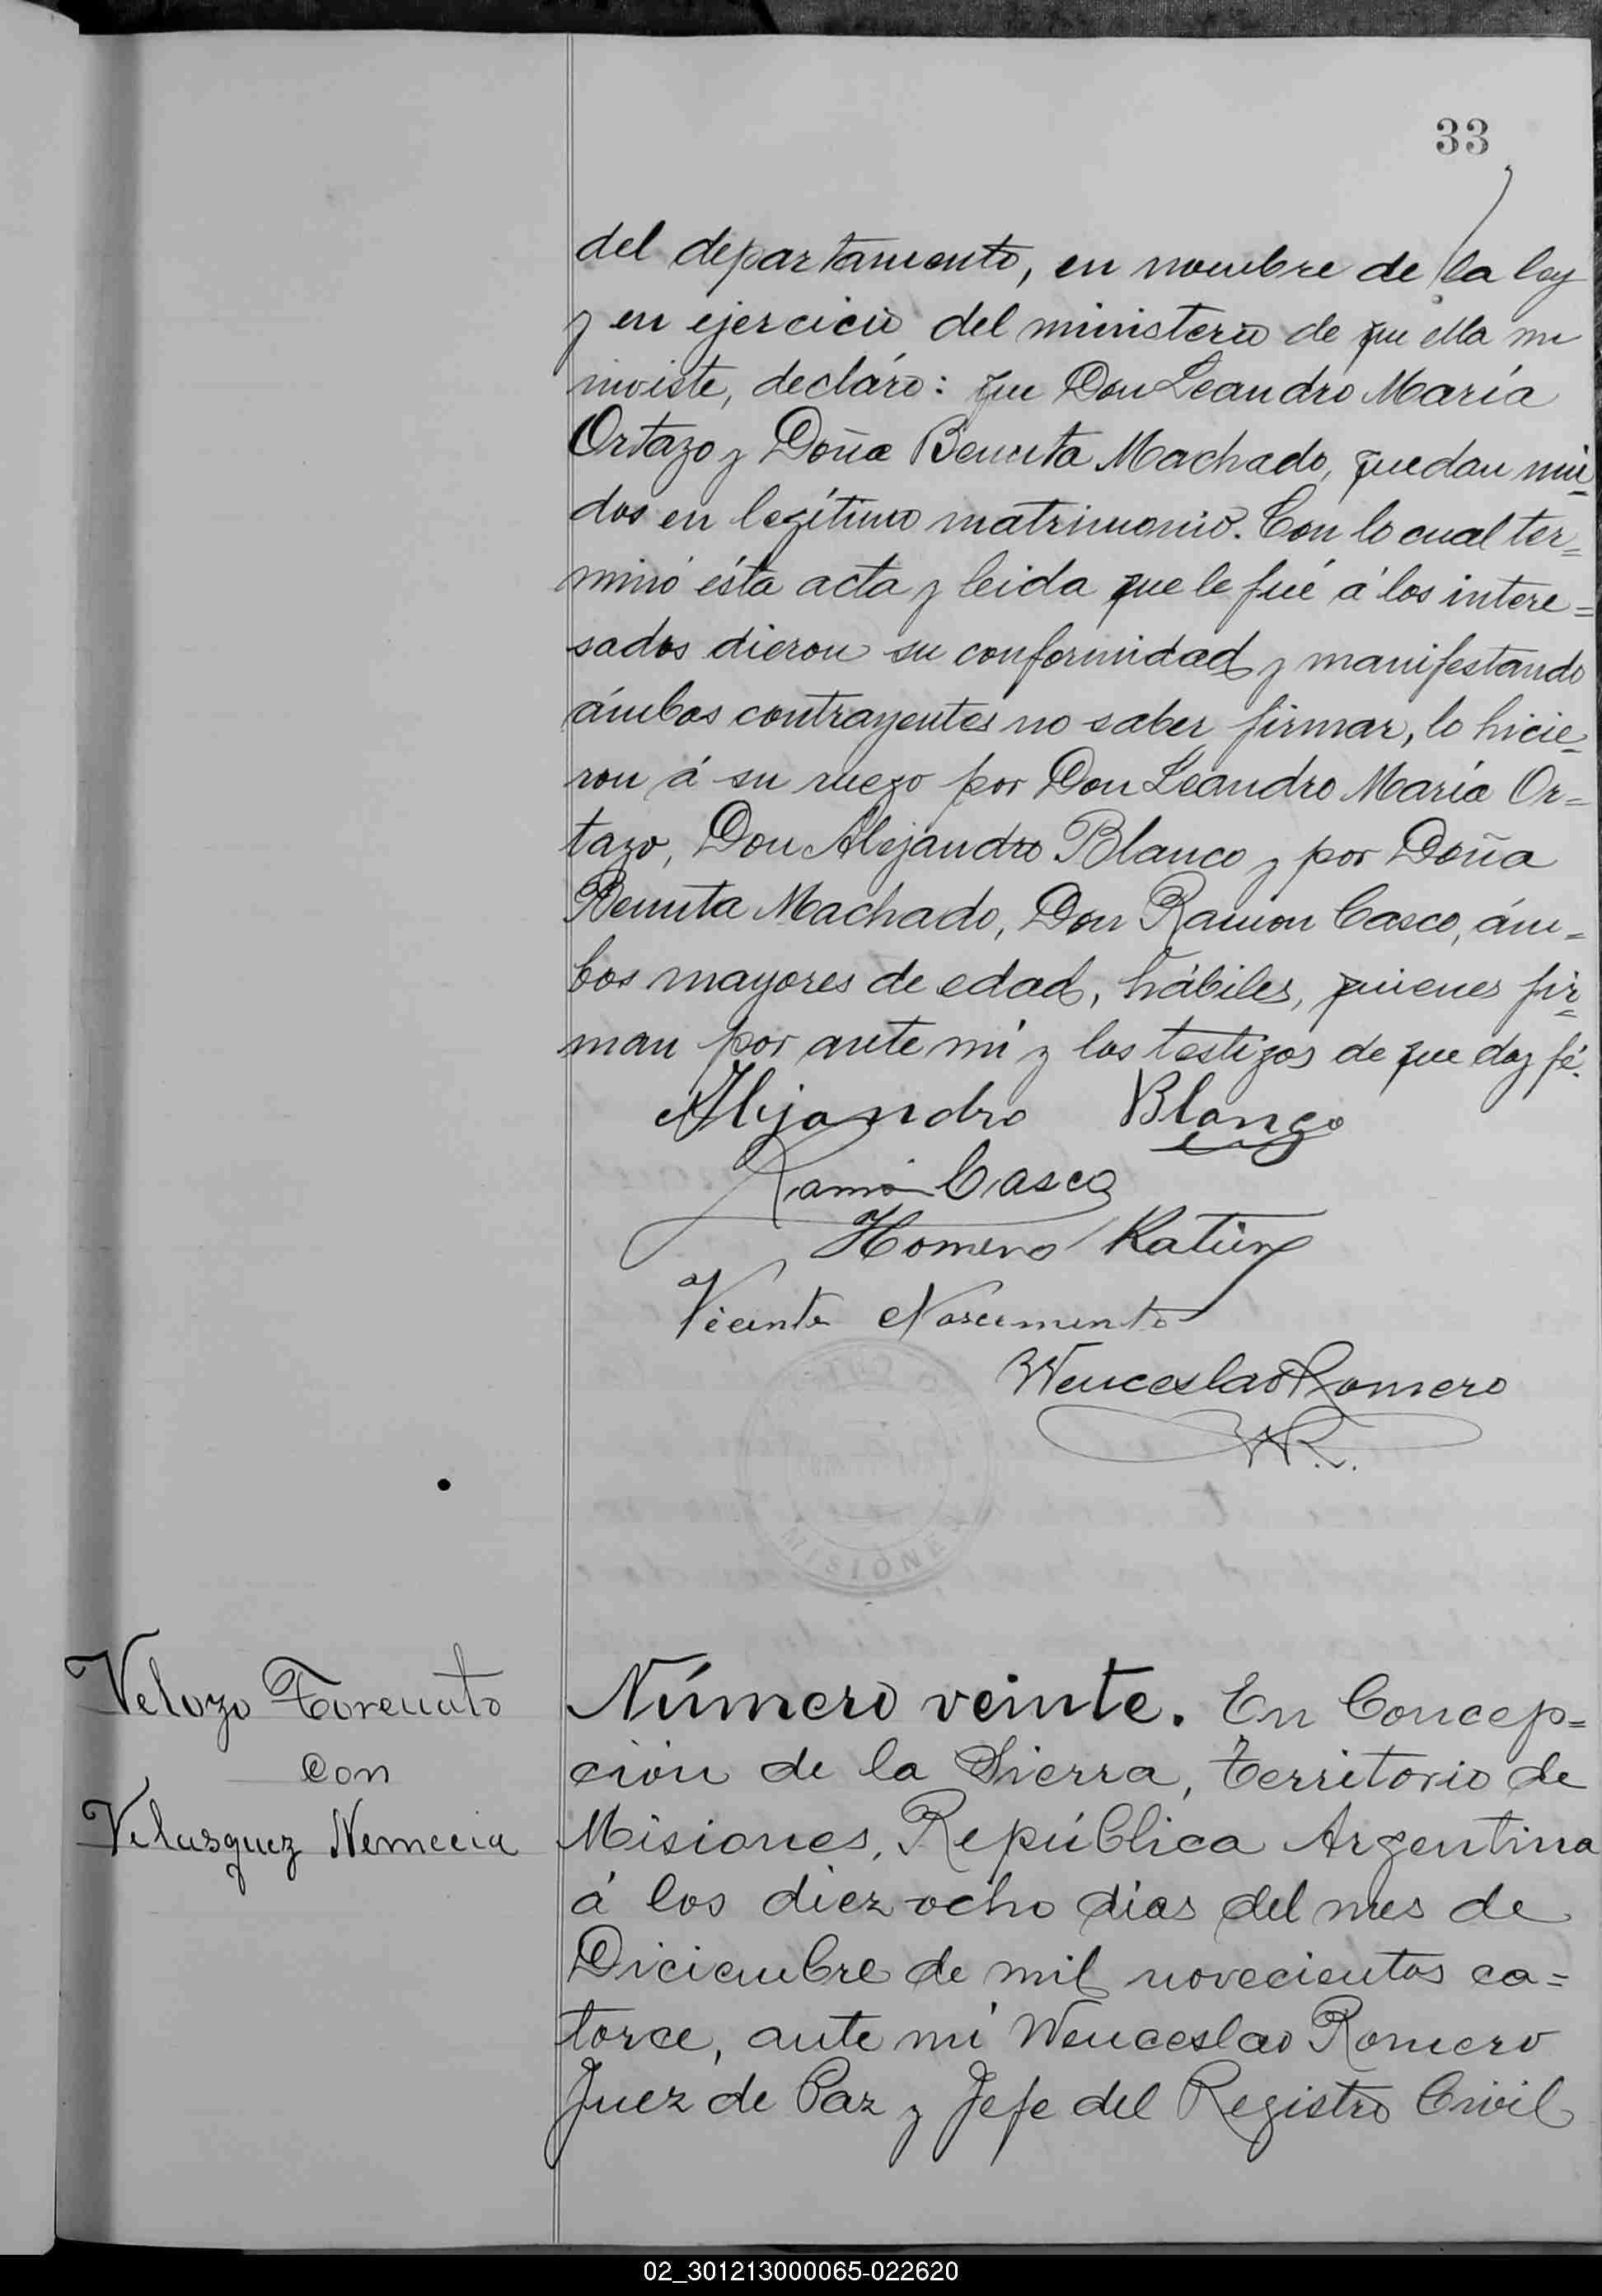 33
del departamento, en nombre de la ley
y en ejercicio del ministerio de que ella me
inviste, decláro: que Don Leandro María
Ortazo y Doña Benita Machado, quedan uni=
dos en legítimo matrimonio. Con lo cual ter=
minó ésta acta y leida que le fué á los intere=
sados dieron su conformidad y manifestando
ámbos contrayentes no saber firmar, lo hicie=
ron á su ruego por Don Leandro María Or=
tazo, Don Alejandro Blanco y por Doña
Benita Machado, Don Ramon Casco, ám=
bos mayores de edad, hábiles, quienes fir=
man por ante mí y los testigos de que doy fé.
Alejandro Blanco
Ramón Casco
Homero
Vicente Nascimento
Wenceslao Romero
WR.
MISIONES
Velozo Torcuato
con
Velasquez Nemecia
Número veinte. En Concep=
ción de la Sierra, territorio de
Misiones, República Argentina
á los diez ocho dias del mes de
Diciembre de mil novecientos ca=
torce, ante mí Wenceslao Romero
Juez de Paz y Jefe del Registro Civil
02_301213000065-022620